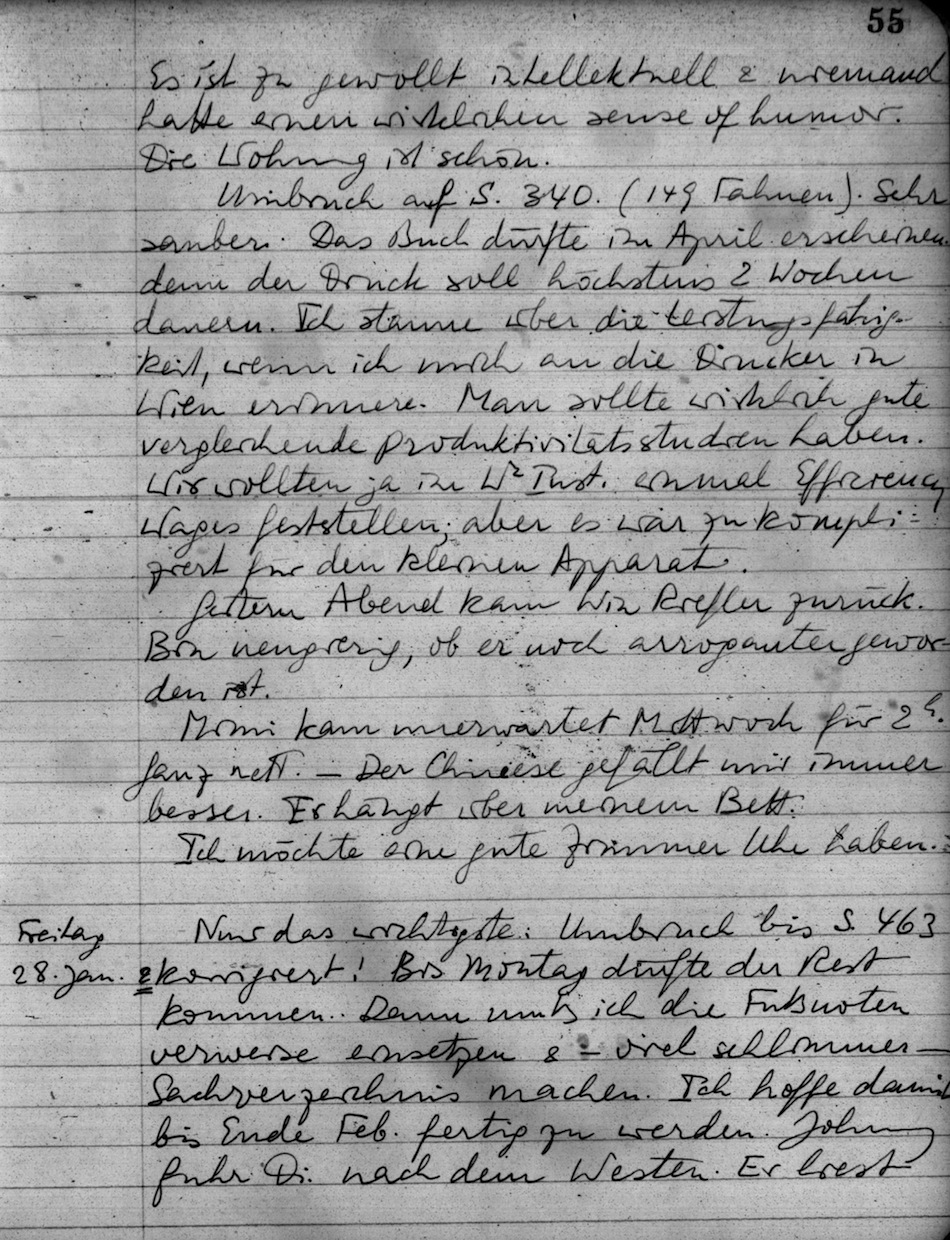 55
Es ist zu gewollt intellektuell & niemand
hatte einen wirklichen sense of humor.
Die Wohnung ist schön.
Umbruch auf S. 340. (149 Fahnen). Sehr
sauber. Das Buch dürfte im April erscheinen
denn der Druck soll höchstens 2 Wochen
dauern. Ich staune über die Leistungsfähig-
keit, wenn ich mich an die Drucker in
Wien erinnere. Man sollte wirklich gute
vergleichende Produktivitätsstudien haben.
Wir wollten ja im Inst. einmal Efficiency
Wages feststellen; aber es war zu kompli-
ziert für den kleinen Apparat.
Gestern Abend kam Win Riefler zurück.
Bin neugierig, ob er noch arroganter gewor-
den ist.
Mimi kam unerwartet Mittwoch für 2h.
Ganz nett. – Der Chinese gefällt mir immer
besser. Er hängt über meinem Bett.
Ich möchte eine gute Zimmer Uhr haben.
Freitag Nur das wichtigste: Umbruch bis S. 463
28. Jan. & korrigiert! Bis Montag dürfte der Rest
kommen. Dann muß ich die Fußnoten
verweise einsetzen & – viel schlimmer –
Sachverzeichnis machen. Ich hoffe damit
bis Ende Feb. fertig zu werden. Johnny
fuhr Di. nach dem Westen. Er liest